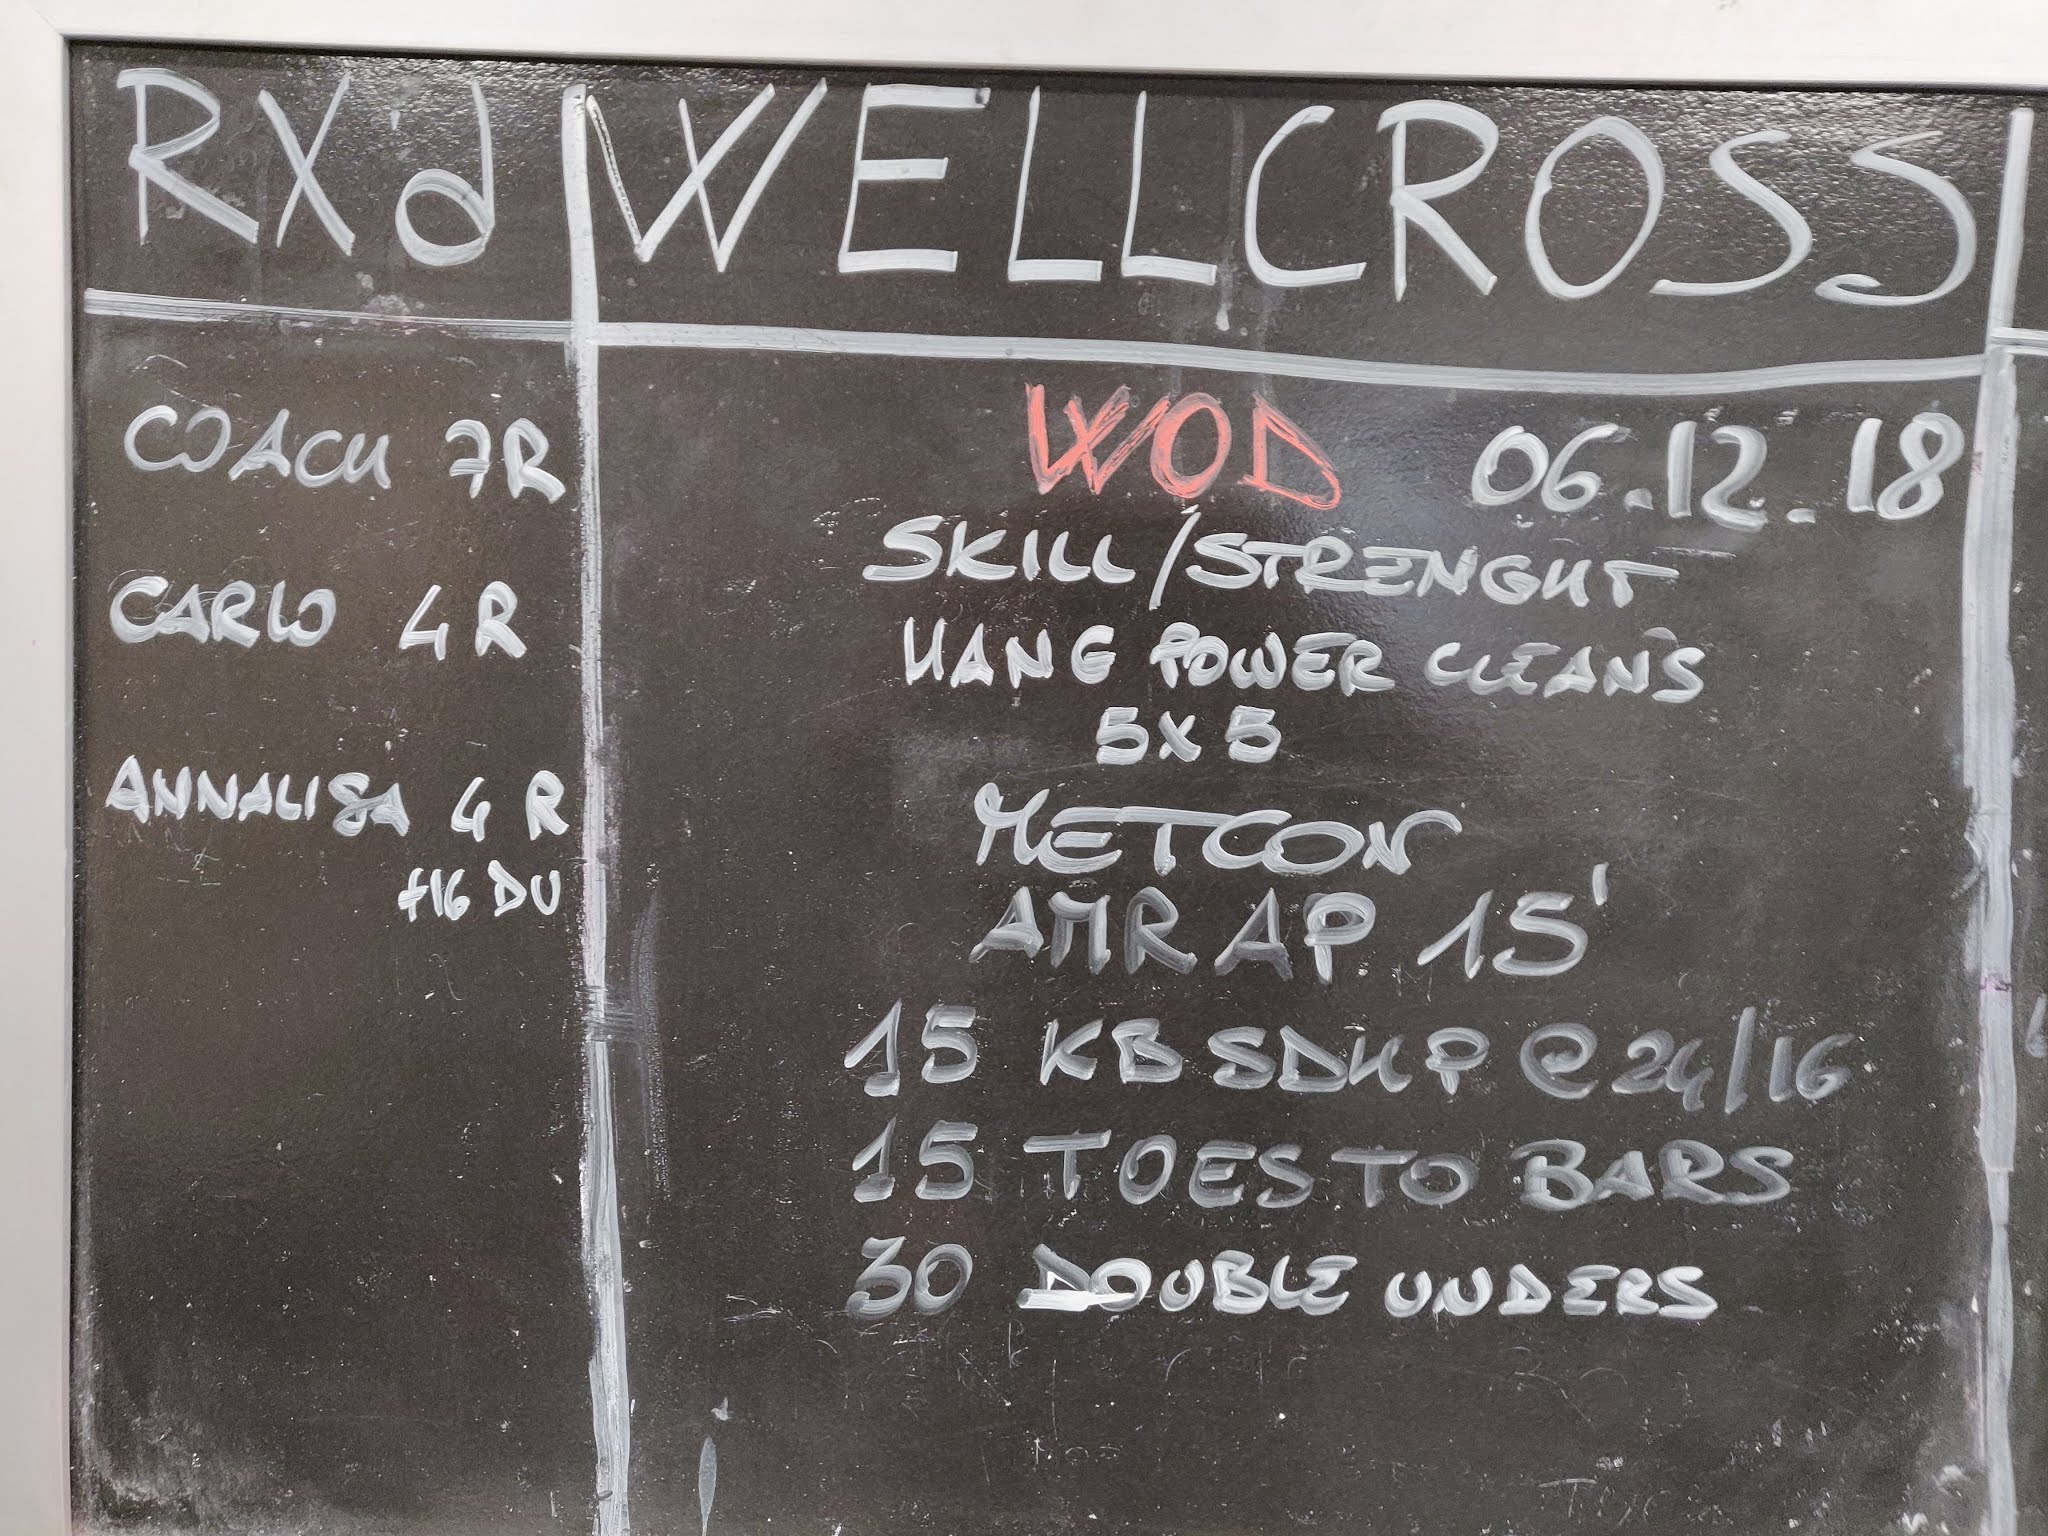 RXd
COACH 7R
CARLO 4R
ANNALISA 4 R
+16 DU
WELLCROSS
WOD 06.12.18
SKILL/STRENGHT
HANG POWER CLEANS
5x5
METCON
AMRAP 15'
15 KB SDHP @ 24/16
15 TOES TO BARS
30 DOUBLE UNDERS